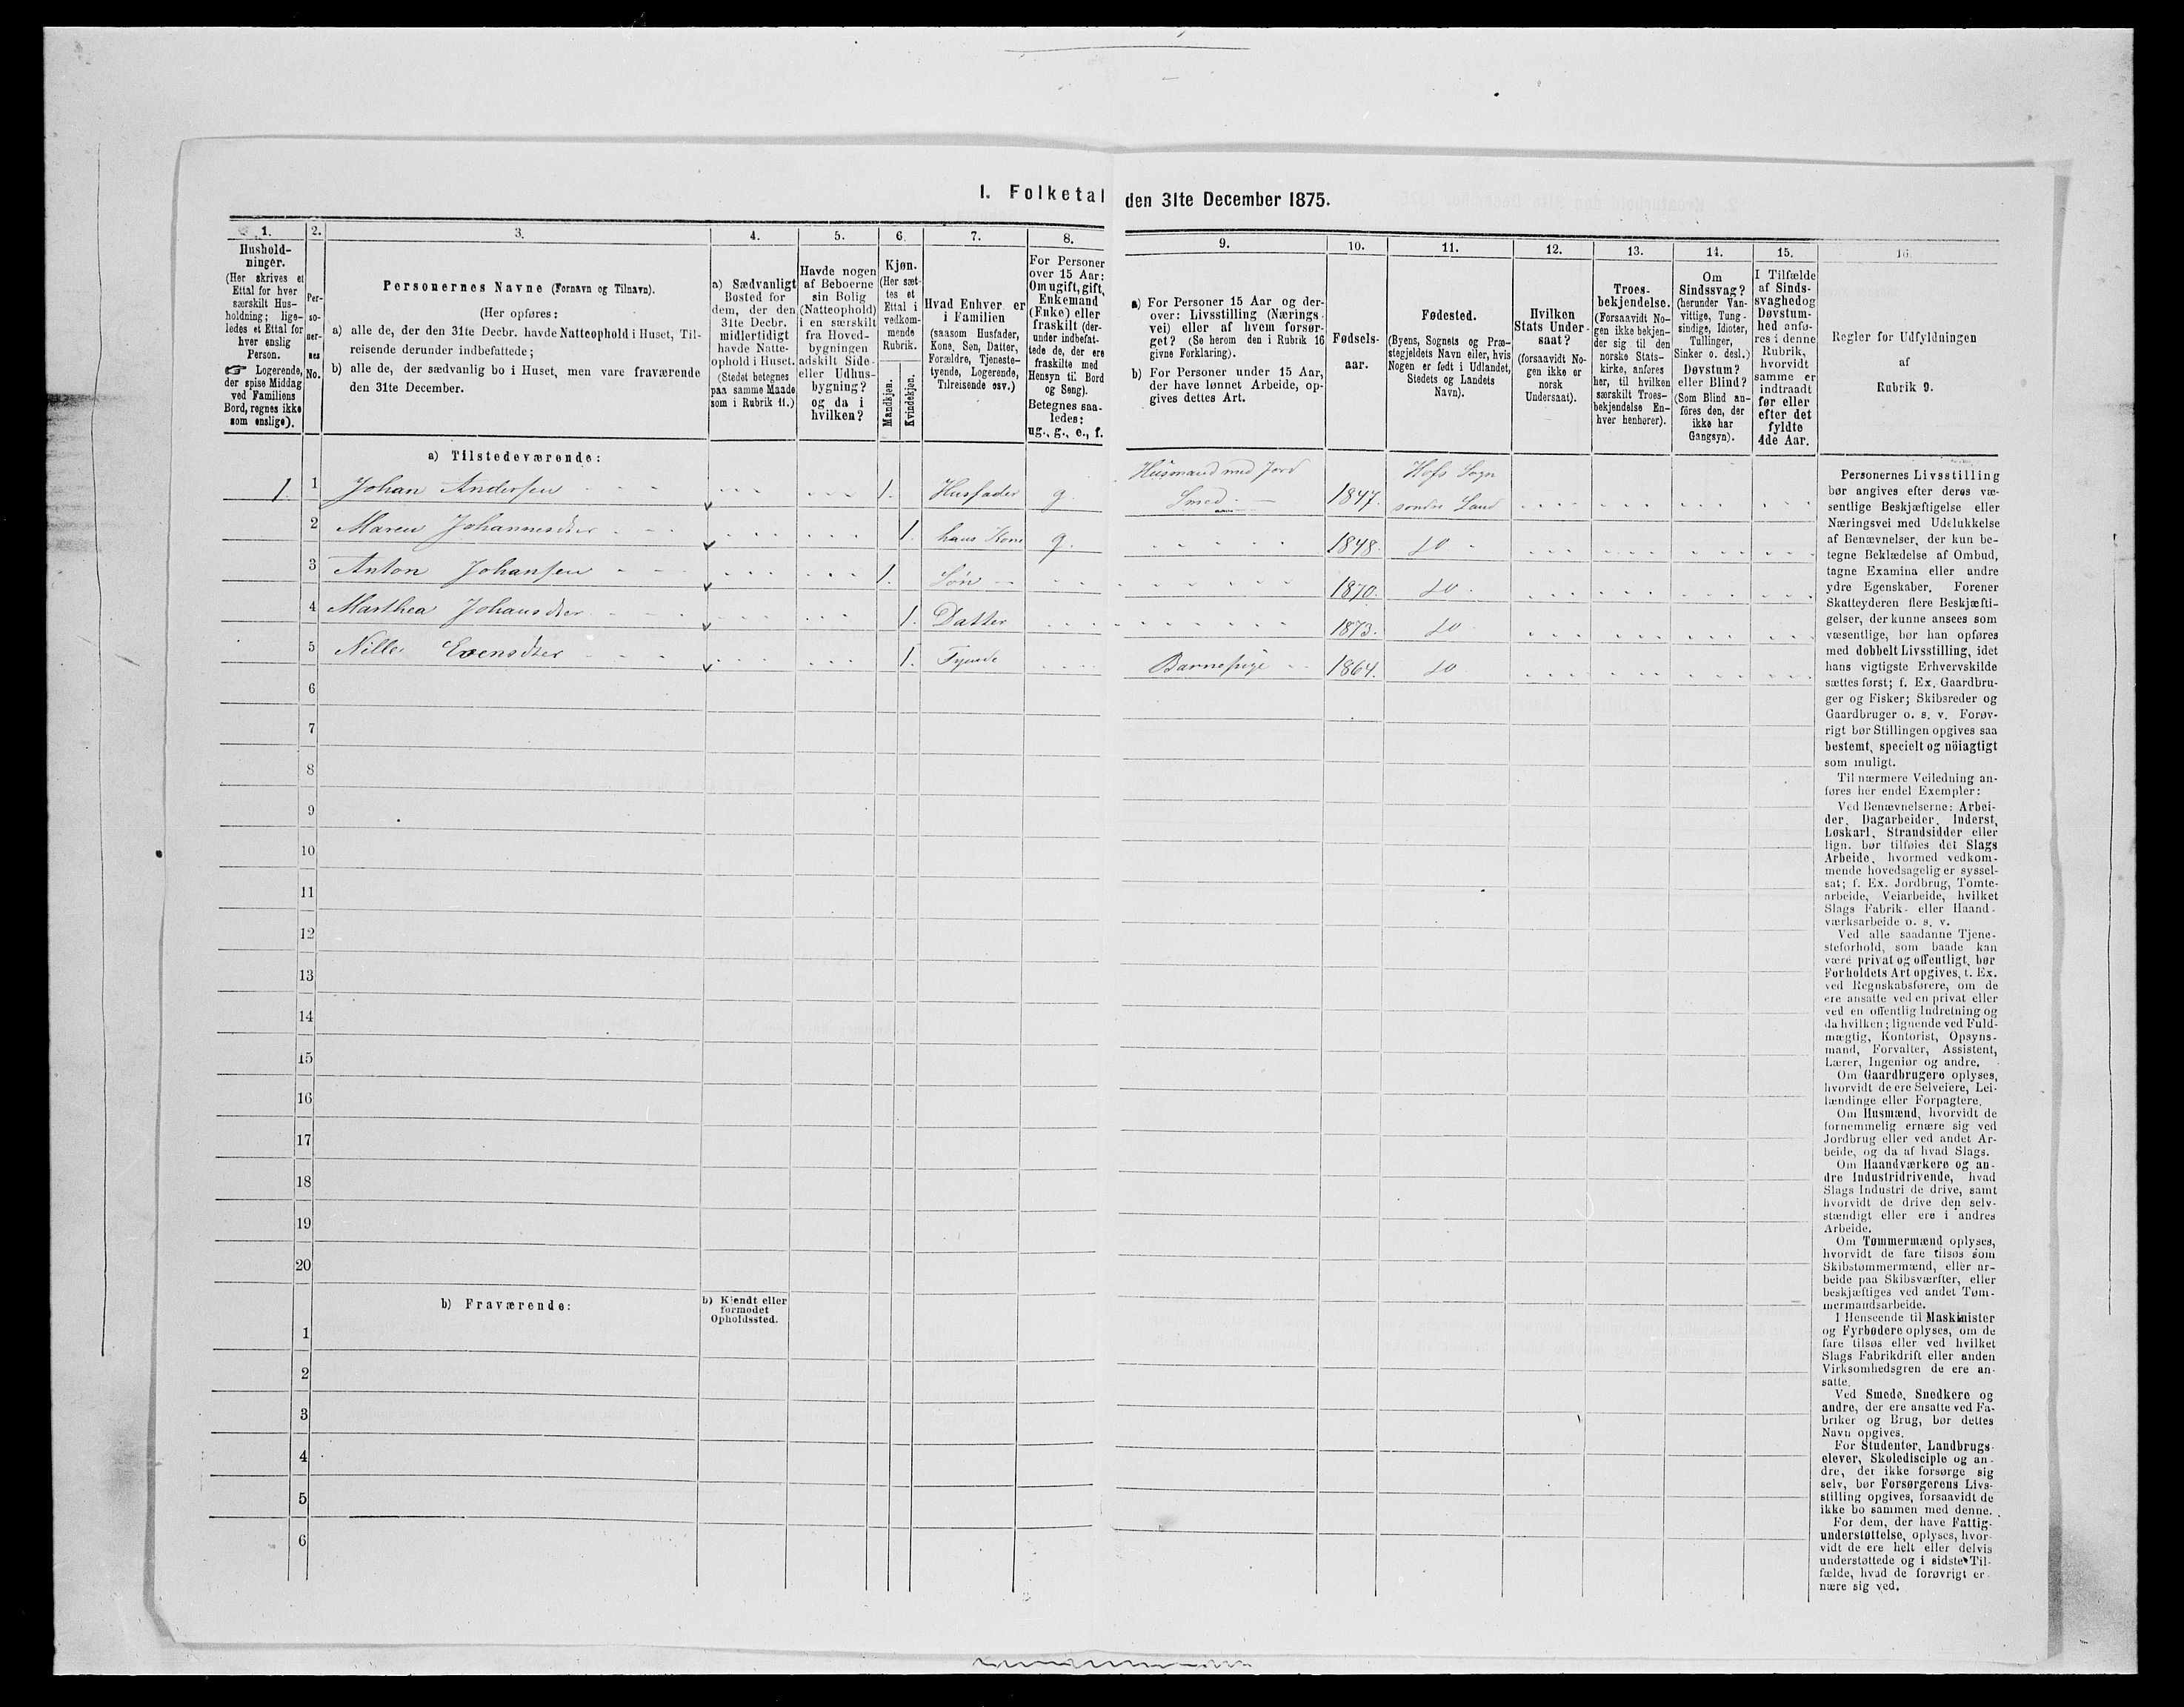 I. Folketal den 31te December 1875.
1.
Hushold-
ninger.
(Her skrives et
Ettal for hver
særskilt Hus-
holdning; lige-
ledes et Ettal for
hver enslig
Person.
☞ Logerende,
der spise Middag
ved Familiens
Bord, regnes ikke
som enslige).
2.
Per-
so-
ner-
nes
No.
3.
Personernes Navne (Fornavn og Tilnavn).
(Her opføres:
a) alle de, der den 31te Decbr. havde Natteophold i Huset, Til-
reisende derunder indbefattede;
b) alle de, der sædvanlig bo i Huset, men vare fraværende
den 31te December.
4.
a) Sædvanligt
Bosted for
dem, der den
31te Decbr.
midlertidigt
havde Natte-
ophold i Huset.
(Stedet betegnes
paa samme Maade
som i Rubrik 11.)
5.
Havde nogen
af Beboerne
sin Bolig
(Natteophold)
i en særskilt
fra Hoved-
bygningen
adskilt Side-
eller Udhus-
bygning?
og da i
hvilken?
6.
Kjøn.
(Her sæt-
tes et
Ettal i
vedkom-
mende
Rubrik.
Mandkjøn.
Kvindekjøn.
7.
Hvad Enhver er
i Familien
(saasom Husfader,
Kone, Søn, Datter,
Forældre, Tjeneste-
tyende, Logerende,
Tilreisende osv.)
8.
For Personer
over 15 Aar:
Om ugift, gift,
Enkemand
(Enke) eller
fraskilt (der-
under indbefat-
tede de, der ere
fraskilte med
Hensyn til Bord
og Seng).
Betegnes saa-
ledes:
ug., g., e., f.
9.
a) For Personer 15 Aar og der-
over: Livsstilling (Nærings-
vei) eller af hvem forsør-
get? (Se herom den i Rubrik 16
givne Forklaring).
b) For Personer under 15 Aar,
der have lønnet Arbeide, op-
gives dettes Art.
10.
Fødsels-
aar.
11.
Fødested.
(Byens, Sognets og Præ-
stegjeldets Navn eller, hvis
Nogen er født i Udlandet,
Stedets og Landets
Navn).
12.
Hvilken
Stats Under-
saat?
(forsaavidt No-
gen ikke er
norsk
Undersaat).
13.
Troes-
bekjendelse.
(Forsaavidt No-
gen ikke bekjen-
der sig til den
norske Stats-
kirke, anføres
her, til hvilken
særskilt Troes-
bekjendelse En-
hver henhører).
14.
Om
Sindssvag?
(herunder Van-
vittige, Tung-
sindige, Idioter,
Tullinger,
Sinker o. desl.)
Døvstum?
eller Blind?
(Som Blind an-
føres den, der
ikke har
Gangsyn).
15.
I Tilfælde
af Sinds-
svaghed og
Døvstum-
hed anfø-
res i denne
Rubrik,
hvorvidt
samme er
indtraadt
før eller
efter det
fyldte
4de Aar.
16.
Regler for Udfyldningen
af
Rubrik 9.
a) Tilstedeværende:
1. 1 Johan Andersen 1. Husfader g. Husmand med Jord
Smed 1847. Hofs Sogn
søndre Land
2 Maren Johannesdter 1. hans Kone g. 1848. do
3 Anton Johansen 1. Søn 1870. do
4 Marthea Johansdter 1. Datter 1873. do
5 Nille Evensdter 1. Tyende Barnepige 1864. do
6
7
8
9
10
11
12
13
14
15
16
17
18
19
20
b) Fraværende:
b) Kjendt eller
formodet
Opholdssted.
1
2
3
4
5
6
Personernes Livsstilling
bør angives efter deres væ-
sentlige Beskjæftigelse eller
Næringsvei med Udelukkelse
af Benævnelser, der kun be-
tegne Beklædelse af Ombud,
tagne Examina eller andre
ydre Egenskaber. Forener
Skatteyderen flere Beskjæfti-
gelser, der kunne ansees som
væsentlige, bør han opføres
med dobbelt Livsstilling, idet
hans vigtigste Erhvervskilde
sættes først; f. Ex. Gaardbru-
ger og Fisker; Skibsreder og
Gaardbruger o. s. v. Forøv-
rigt bør Stillingen opgives saa
bestemt, specielt og nöiagtigt
som muligt.
Til nærmere Veiledning an-
føres her endel Exempler:
Ved Benævnelserne: Arbei-
der, Dagarbeider, Inderst,
Løskarl, Strandsidder eller
lign. bør tilføies det Slags
Arbeide, hvormed vedkom-
mende hovedsagelig er syssel-
sat; f. Ex. Jordbrug, Tomte-
arbeide, Veiarbeide, hvilket
Slags Fabrik- eller Haand-
værksarbeide o. s. v.
Ved alle saadanne Tjene-
steforhold, som baade kan
være privat og offentligt, bør
Forholdets Art opgives, t. Ex.
ved Regnskabsførere, om de
ere ansatte ved en privat eller
ved en offentlig Indretning og
da hvilken; lignende ved Fuld-
mægtig, Kontorist, Opsyns-
mand, Forvalter, Assistent,
Lærer, Ingeniør og andre.
Om Gaardbrugere oplyses,
hvorvidt de ere Selveiere, Lei-
lændinge eller Forpagtere.
Om Husmænd, hvorvidt de
fornemmelig ernære sig ved
Jordbrug eller ved andet Ar-
beide, og da af hvad Slags.
Om Haandværkere og an-
dre Industridrivende, hvad
Slags Industri de drive, samt
hvorvidt de drive den selv-
stændigt eller ere i andres
Arbeide.
Om Tømmermænd oplyses,
hvorvidt de fare tilsøs som
Skibstømmermænd, eller ar-
beide paa Skibsværfter, eller
beskjæftiges ved andet Tøm-
mermandsarbeide.
I Henseende til Maskinister
og Fyrbødere oplyses, om de
fare tilsøs eller ved hvilket
Slags Fabrikdrift eller anden
Virksomhedsgren de ere an-
satte.
Ved Smede, Snedkere og
andre, der ere ansatte ved Fa-
briker og Brug, bør dettes
Navn opgives.
For Studenter, Landbrugs-
elever, Skoledisciple og an-
dre, der ikke forsørge sig
selv, bør Forsørgerens Livs-
stilling opgives, forsaavidt de
ikke bo sammen med denne.
For dem, der have Fattig-
understøttelse, oplyses, hvor-
vidt de ere helt eller delvis
understøttede og i sidste Til-
fælde, hvad de forøvrigt er-
nære sig ved.